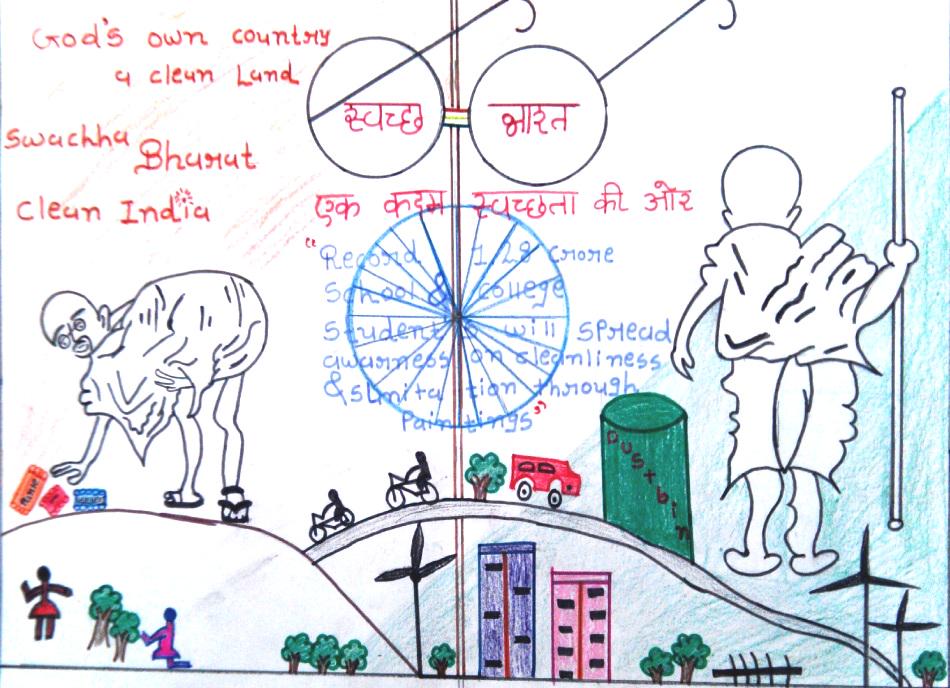 God's own country
a clean Land
Swachha Bharat
Clean India
स्वच्छ भारत
एक कदम स्वच्छता की ओर
"Record 1.28 crore
School & college
Student s will spread
awarness on cleanliness
& snita tion through
Paintings"
Dustbin